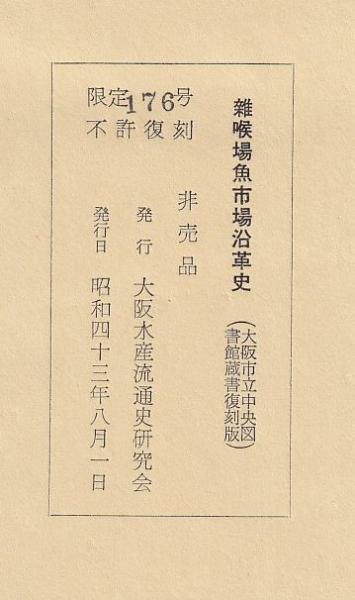 雑喉場魚市場沿革史
(大阪市立中央図
書館蔵書復刻版)
非売品
発行 大阪水産流通史研究会
発行日 昭和四十三年八月一日
限定176号
不許復刻